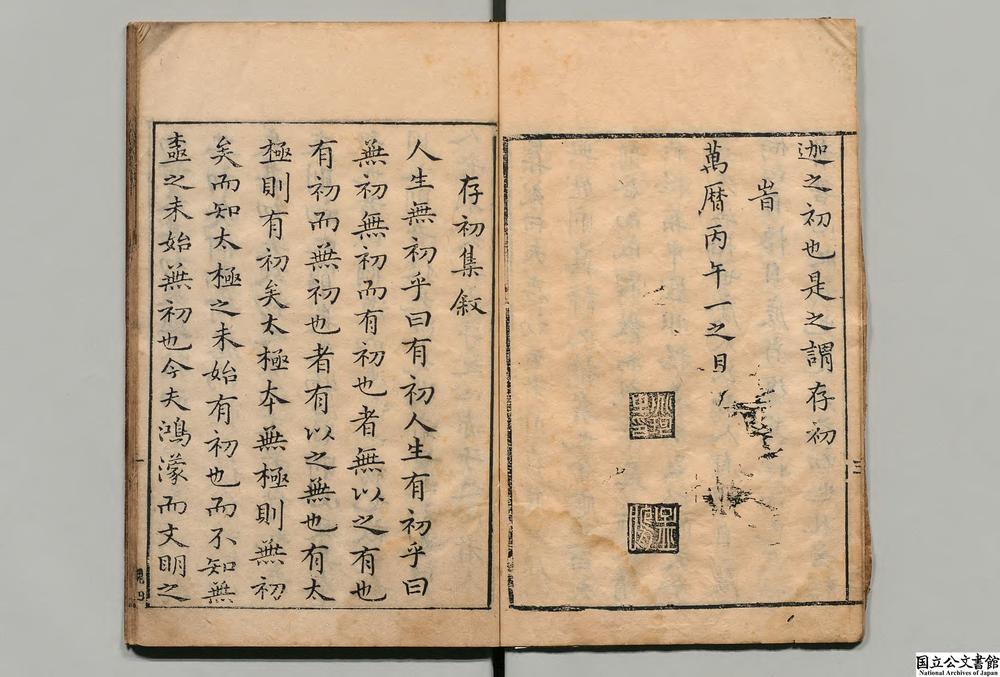 迦之初也是之謂存初
三
旹
萬曆丙午一之日
存初集叙
人生無初乎曰有初人生有初乎曰
無初無初而有初也者無以之有也
有初而無初也者有以之無也有太
極則有初矣太極本無極則無初
矣而知太極之未始有初也而不知無
之未始無初也今夫鴻濛而文明之
一
国立公文書館
National Archives of Japan